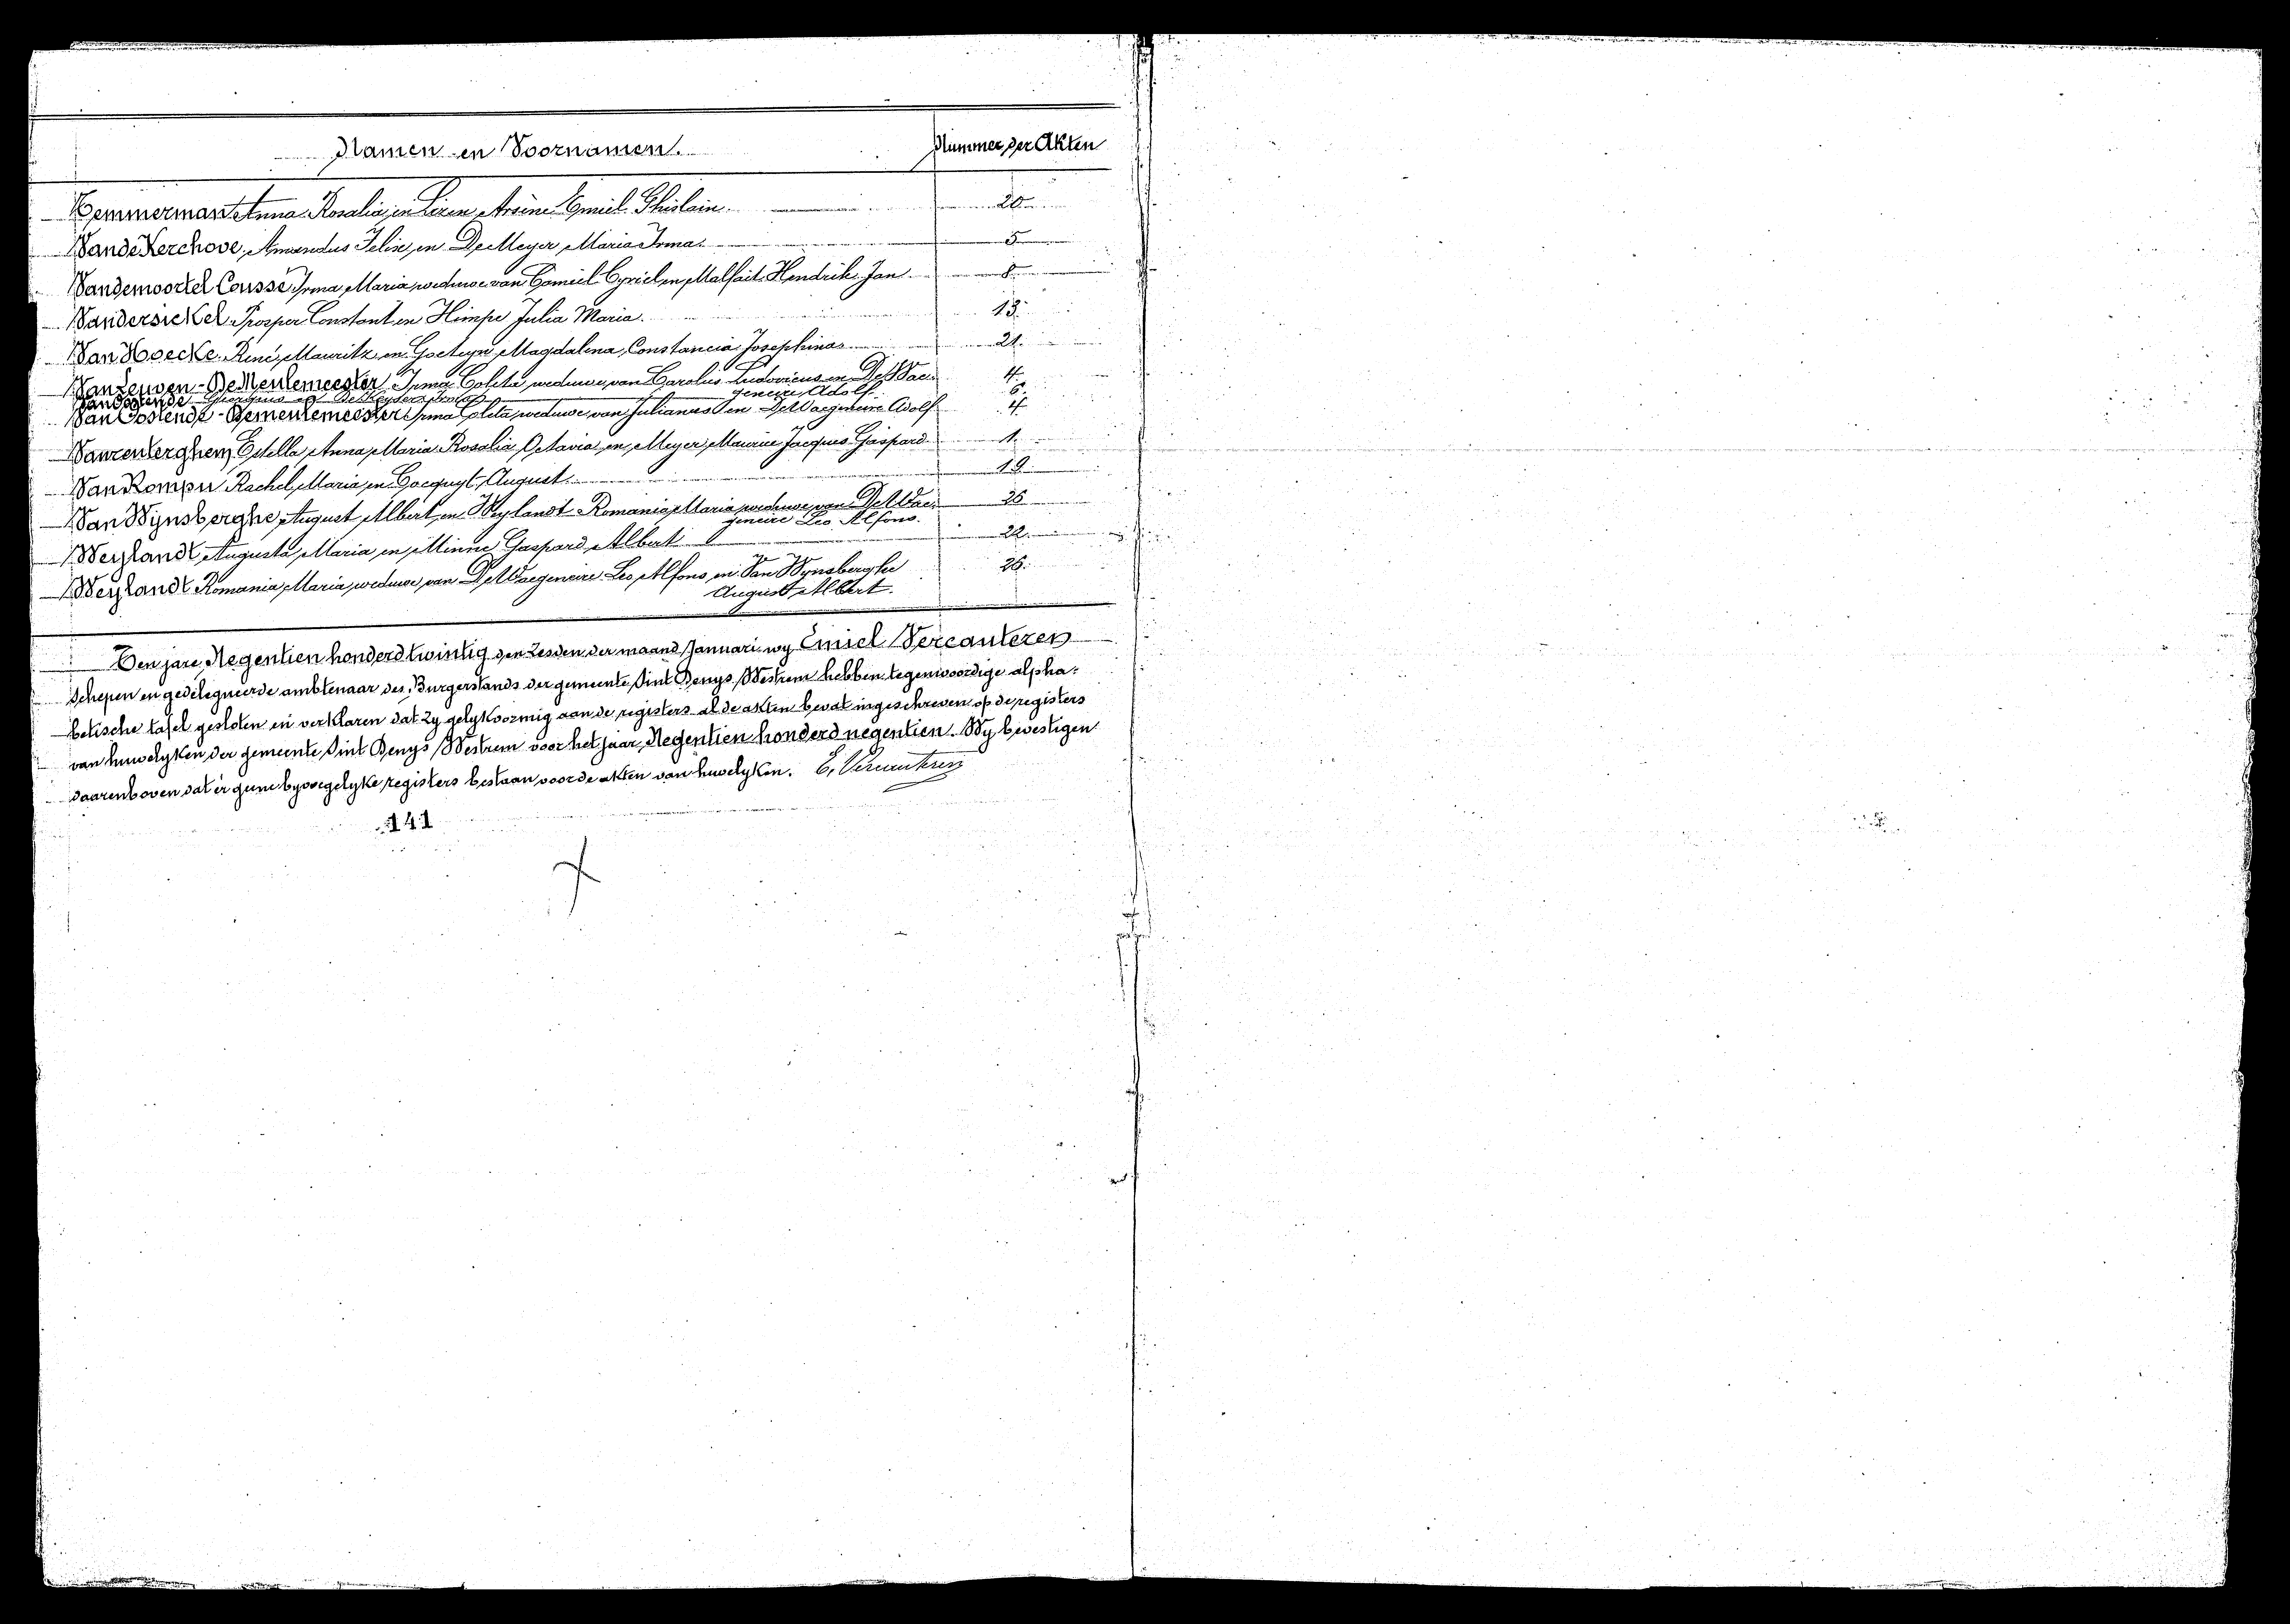 Namen en Voornamen. Nummer der Akten
Temmerman Anna Rosalia, en Emiel Ghislain. 20
Van de Kerchove, Amandus Felix, en De Meyer, Maria Irma. 5
Vandenwortel Coussé Irma Maria, weduwe van Camiel Cyriel en Malfait Hendrik Jan 8
Vandersickel Prosper Constant en Himpe Julia Maria. 13
Van Hoecke, René, Mauritz en Goeteyn Magdalena, Constancia Josephina 21
Van Leuven - De Meulemeester, Irma Coleta, weduwe van Carolus Ludovicus en De Wae- 4
geneire, Adolf
Van Oostende Georgius en De Keyser 6
Van Oostende - Demeulemeester Irma Coleta, weduwe van Julianus en De Waegeneire Adolf 4
Vanrenterghem, Estella Anna Maria Rosalia Octavia en Meyer, Maurice Jacques Gaspard 1
Van Rompu Rachel, Maria en Cocquyt, August. 19
Van Wynsberghe, August Albert, en Weylandt Romania Maria weduwe van De Wae- 26
geneire Leo Alfons.
Weylandt, Augusta, Maria en Minne Gaspard, Albert 22
Weylandt Romania, Maria, weduwe, van De Waegeneire Leo, Alfons, en Van Wynsberghe 26
August Albert.
Den jare, Negentien honderd twintig den Zesden der maand Januari wy Emiel Vercauteren
Schepen en gedelegueerde ambtenaar des Burgerstands der gemeente Sint Denys Westrem hebben tegenwoordige alpha-
betische tafel gesloten en verklaren dat zy gelykvormig aan de registers al de akten bevat ingeschreven op de registers
van huwelyken der gemeente Sint Denys Westrem voor het jaar Negentien honderd negentien. Wy bevestigen
daarenboven dat er geene byvoegelyke registers bestaan voor de akten van huwelyken. E. Vercauteren
141